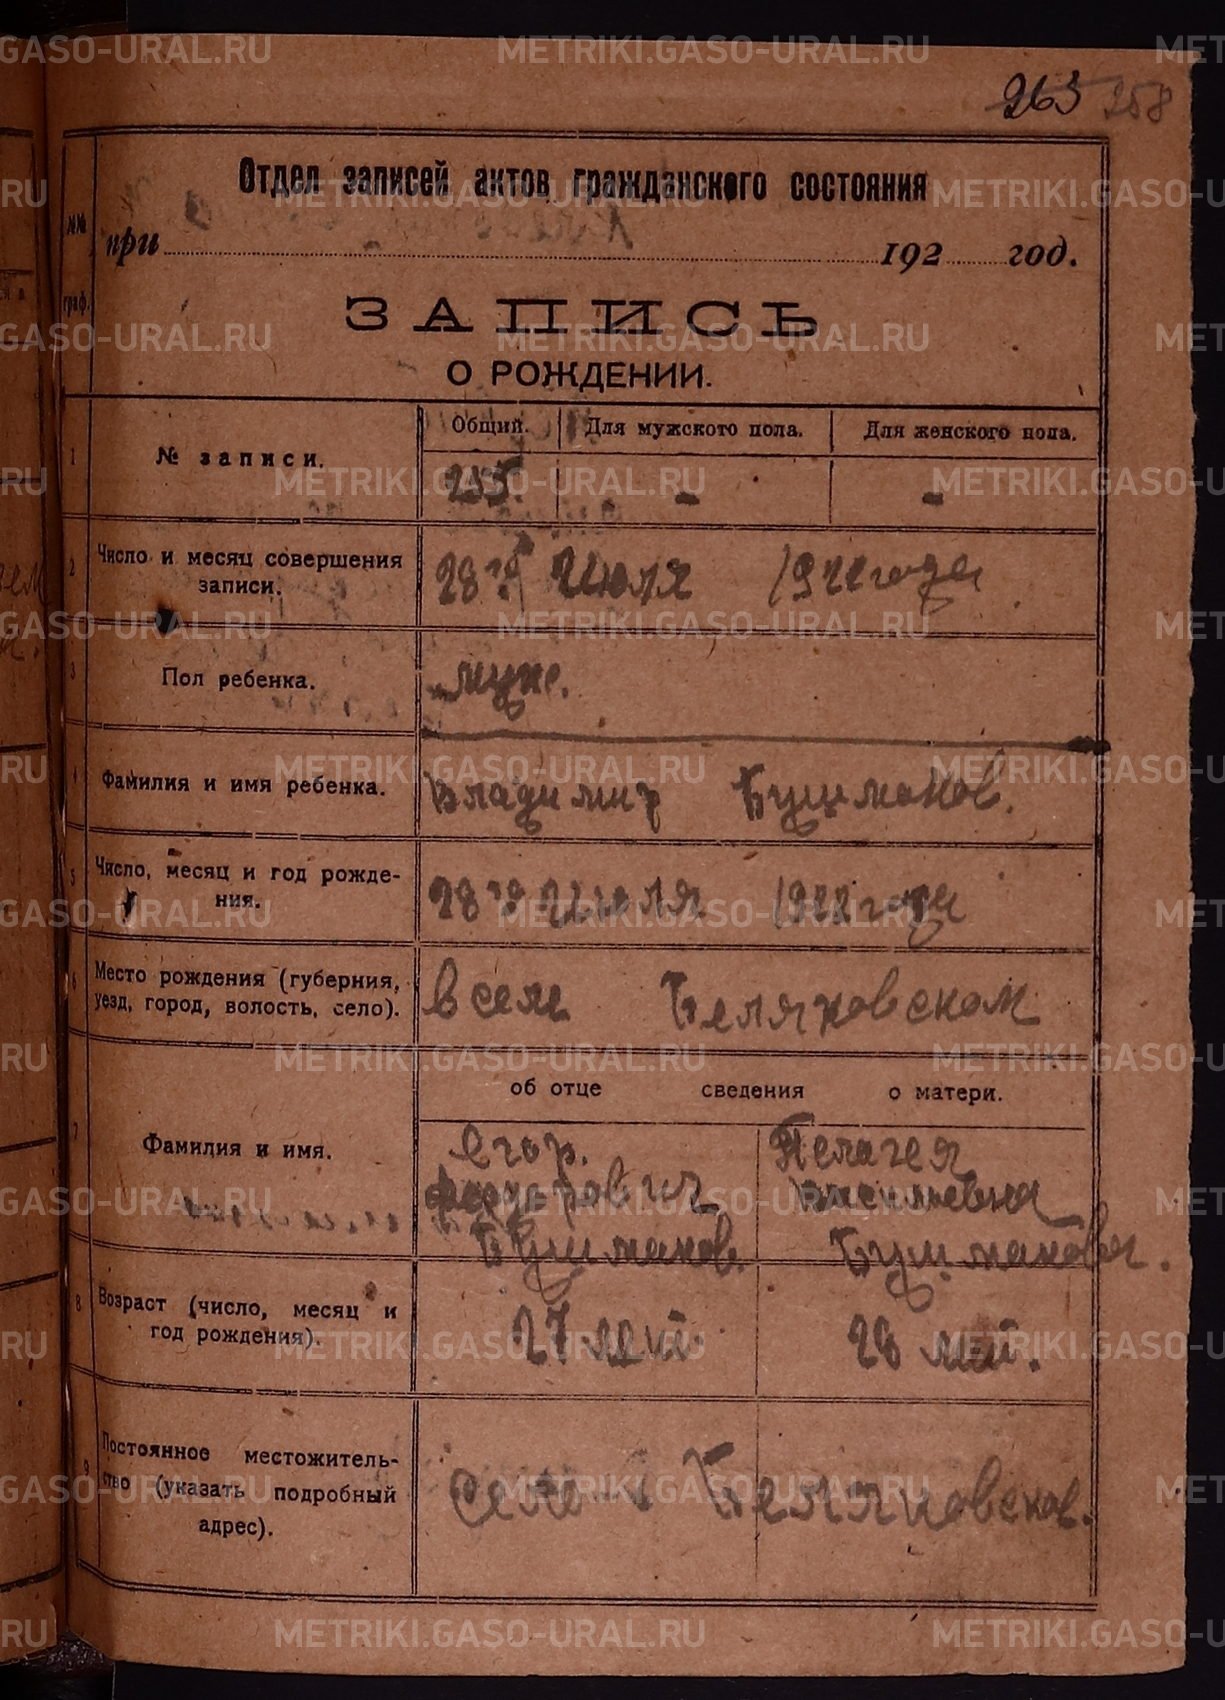 263 258
Отдел записей актов гражданского состояния
№№ граф.
при 192 год.
ЗАПИСЬ
О РОЖДЕНИИ.
Общий. Для мужского пола. Для женского пола.
1 № записи.
255. - -
2 Число и месяц совершения
записи.
28го Июля 1922 года
3 Пол ребенка.
муж.
4 Фамилия и имя ребенка.
Владимир Бушманов.
5 Число, месяц и год рожде-
ния.
28го Июля 1922 года
6 Место рождения (губерния,
уезд, город, волость, село).
в селе Беляковском
об отце сведения о матери.
7 Фамилия и имя.
Егор. Пелагея
Федорович Васильевна
Бушманов. Бушманова.
8 Возраст (число, месяц и
год рождения).
27 лет 28 лет.
9 Постоянное местожитель-
ство (указать подробный
адрес).
Село Беляковское.
METRIKI.GASO-URAL.RU